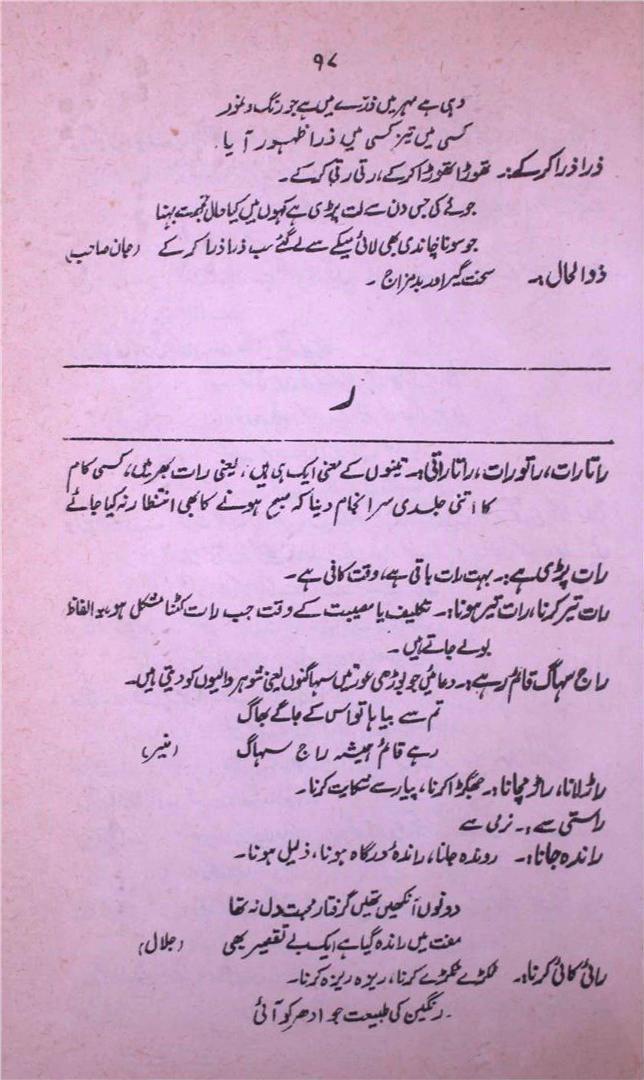 ۹۷
وہی ہے مہر میں ذرے میں ہے جو رنگ و نمود
کسی میں تیز کسی میں ذرا ظہور آیا۔
ذرا ذرا کرکے:۔ تھوڑا تھوڑا کرکے، رتی رتی کرکے۔
جوئے کی جس دن سے لت پڑی ہے کہوں میں کیا حال تجھ سے بہنا
جو سونا چاندی بھی لائی میکے سے لے گئے سب ذرا ذرا کرکے (جان صاحب)
ذوالحال:۔ سخت گیر اور بدمزاج۔
ر
راتا رات، راتو رات، راتا راتی:۔ تینوں کے معنی ایک ہی ہیں، یعنی رات بھر میں، کسی کام
کا اتنی جلدی سرانجام دینا کہ صبح ہونے کا بھی انتظار نہ کیا جائے
رات پڑی ہے:۔ بہت رات باقی ہے، وقت کافی ہے۔
رات تیر کرنا، رات تیر ہونا:۔ تکلیف یا مصیبت کے وقت جب رات کٹنا مشکل ہو یہ الفاظ
بولے جاتے ہیں۔
راج سہاگ قائم رہے:۔ دعائیں جو بوڑھی عورتیں سہاگنوں یعنی شوہر والیوں کو دیتی ہیں۔
تم سے بیاہا تو اس کے جاگے بھاگ
رہے قائم ہمیشہ راج سہاگ (منیر)
راڑ لانا، راڑ مچانا:۔ جھگڑا کرنا، پیار سے شکایت کرنا۔
راستی سے:۔ نرمی سے
راندہ جانا:۔ روندہ جانا، راندہ درگاہ ہونا، ذلیل ہونا۔
دونوں آنکھیں تھیں گرفتار محبت دل نہ تھا
مفت میں راندہ گیا ہے ایک بے تقصیر بھی (جلال)
رائی کائی کرنا:۔ ٹکڑے ٹکڑے کرنا، ریزہ ریزہ کرنا۔
رنگین کی طبیعت جو ادھر کو آئی